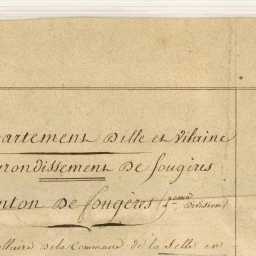 partement Dille et Vilaine
rrondissement De fougères
nton De fougères (2eme Division)
ellaire De la Commune de la Selle en